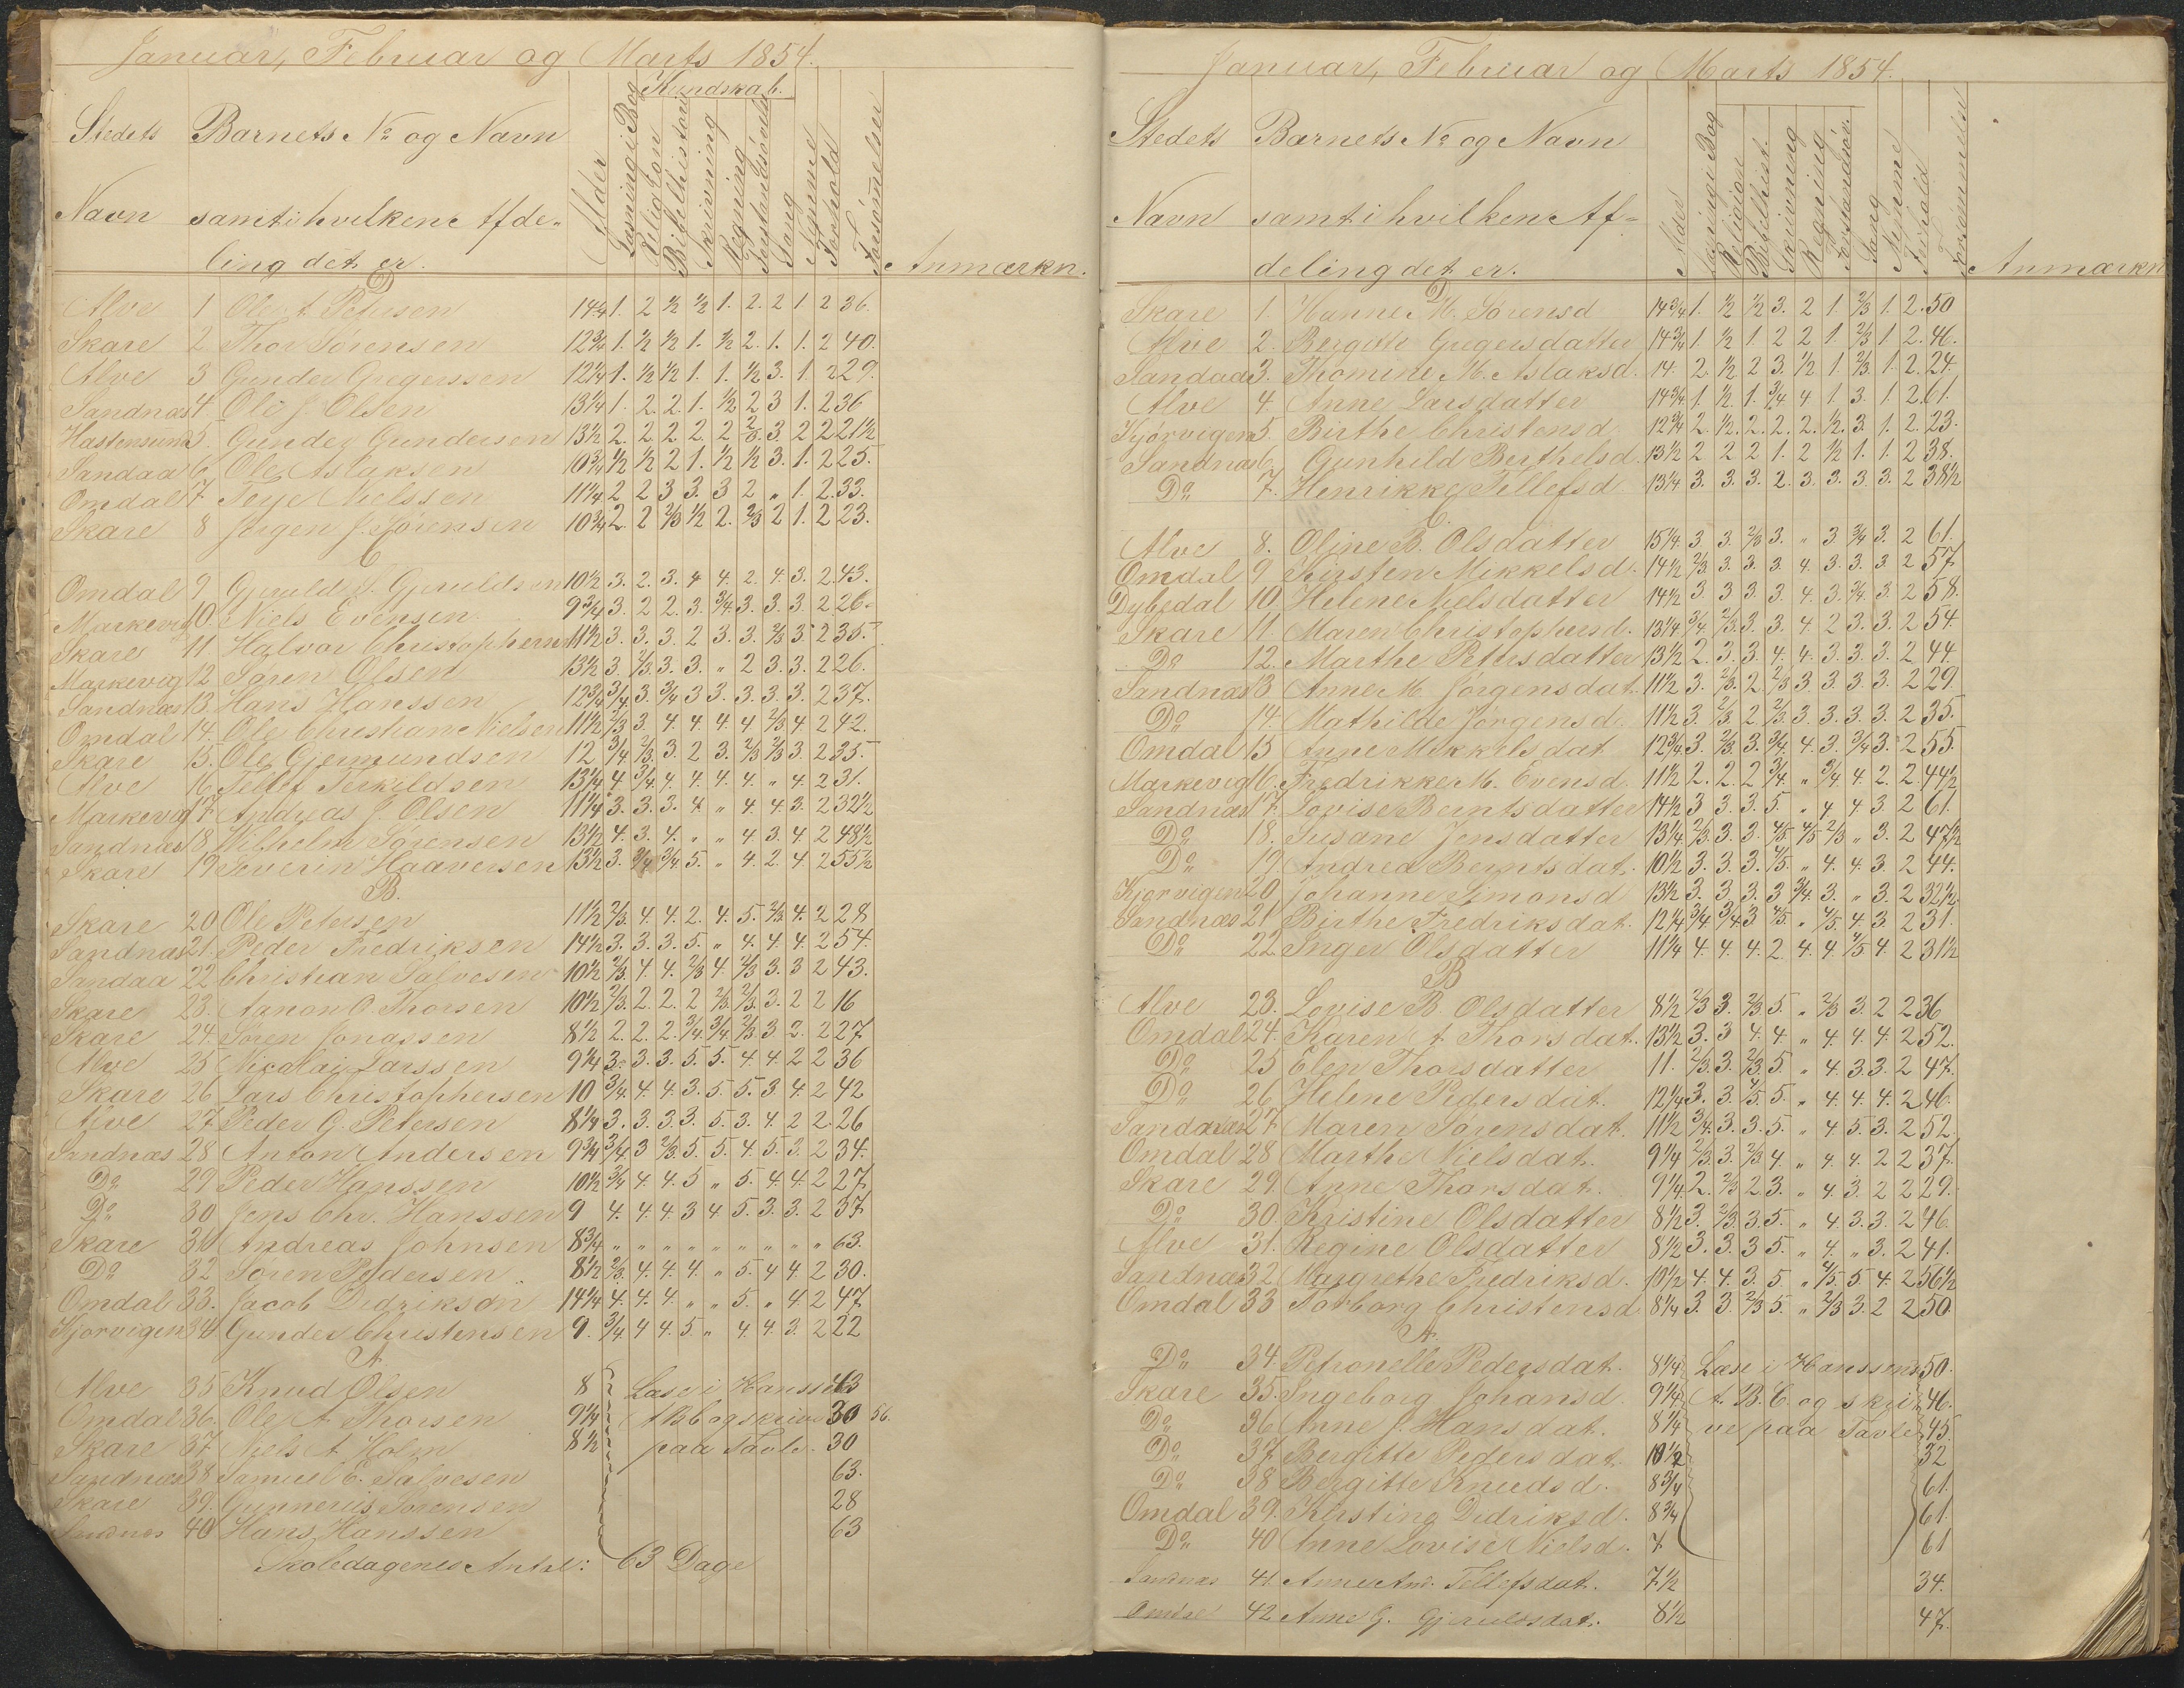 Januar, Februar og Marts 1854.
Kundskab.
Stedets Barnets No og Navn
Navn samt i hvilken Afde-
ling det er.
Alder
Læsning i Bog
Religion
Bibelhistorie
Skrivning
Regning
Forstandsøvelse
Sang
Nemme
Forhold
Forsømmelser
Anmærkn.
D
Alve 1 Ole A Petersen 14¼ 1. 2 ½ ½ 1. 2. 2 1 2 36.
Skare 2 Thor Sørensen 12¾ 1. ½ ½ 1. ½ 2. 1. 1. 2 40.
Alve 3 Gunder Gregerssen 12¼ 1. ½ ½ 1. 1. ½ 3. 1. 2 29.
Sandnæs 4. Ole J. Olsen 13¼ 1. 2. 2. 1. ½ 2 3 1. 2 36
Hastensund 5. Gunder Gundersen 13½ 2. 2 2 2. 2 ⅔ 3. 2 2 21½
Sandaa 6. Ole Aslaksen 10¾ ½ ½ 2 1. ½ ½ 3. 1. 2 25.
Omdal 7 Terje Nielssen 11¼ 2 2 3 3. 3 2 „ 1. 2. 33.
Skare 8 Jørgen J. Sørensen 10¾ 2. 2 ⅔ ½ 2. ⅔ 2 1. 2 23.
C
Omdal 9 Gjeruld J. Gjeruldsen 10½ 3. 2. 3. 4 4. 2. 4. 3. 2. 43.
Markevig 10. Niels Evensen 9¾ 3. 2 2. 3. ¾ 3. 3. 3. 2 26.
Skare 11 Halvor Christophersen 11½ 3. 3. 3. 2 3. 3. ⅔ 3. 2 35.
Markevig 12 Søren Olsen 13½ 3. ⅔ 3. 3. „ 2 3. 3. 2 26.
Sandnæs 13. Hans Hanssen 12¾ ¾ 3. ¾ 3 3. 3. 3. 3. 2 37.
Omdal 14. Ole Christian Nielsen 11½ ⅔ 3 4 4 4. 4 ⅔ 4 2 42.
Skare 15. Ole Gjemundsen 12 ¾ ⅔ 3 2 3. ⅔ ⅔ 3. 2 35.
Alve 16 Tellef Terkildsen 13¼ 4 ¾ 4. 4. 4. 4. „ 4 2 31.
Markevig 17. Andreas J. Olsen 11¼ 3. 3. 3. 4. „ 4. 4 3. 2 32½
Sandnæs 18 Wilhelm Sørensen 13½ 4. 3. 4. „ „ 4. 3. 4. 2 48½
Skare 19 Severin Haaversen 13½ 3. ¾ ¾ 5. „ 4. 2. 4 2 55½
B.
Skare 20 Ole Petersen 11½ ⅔ 4. 4. 2. 4. 5. ⅔ 4. 2 28
Sandnæs 21. Peder Fredriksen 14½ 3. 3. 3. 5. „ 4. 4. 4. 2 54.
Sandaa 22 Christian Salvesen 10½ ⅔ 4. 4. ⅔ 4. ⅔ 3. 3 2 43.
Skare 23. Aanon O. Thorsen 10½ ⅔ 2. 2. 2 ⅔ ⅔ 3. 2 2 16
Skare 24. Søren Jonassen 8½ 2. 2. 2. ¾ ¾ ⅔ 3 2. 2 27
Alve 25 Nicolai Larssen 9¼ 3. 3. 3. 5. 5. 4. 4. 2 2 36
Skare 26 Lars Christophersen 10 ¾ 4. 4. 3. 5. 5. 3. 4. 2 42
Alve 27. Peder G. Petersen 8¼ 3. 3. 3. 3. 5. 3. 4. 2 2. 26
Sandnæs 28 Anton Andersen 9¾ ¾ 3 ⅔ 5. 5. 4. 5. 3. 2 34.
Do 29 Peder Hanssen 10½ ¾ 4. 4. 5 „ 5. 4. 4. 2 27.
Do 30 Jens Chr. Hanssen 9 4. 4. 4. 3 4. 5. 3. 3. 2 37.
Skare 31 Andreas Johnsen 8¾ „ „ „ „ „ „ „ „ „ 63.
Do 32 Søren Pedersen 8½ ⅔ 4. 4. 4. „ 5. 4 4. 2 30.
Omdal 33. Jacob Didriksøn 14¼ 4. 4. 4. „ „ 5. „ 4. 2 47.
Kjørvigen 34 Gunder Christensen 9. ¾ 4 4. 5. „ 4. 4. 3. 2 22
A.
Alve 35 Knud Olsen 8 Læse i Hanssens 43
Omdal 36. Ole A Thorsen 9¼ ABC og skrive 30 56.
Skare 37. Niels A. Holm 8½ paa Tavle. 30
Sandnæs 38 Samuel E. Salvesen 63.
Skare 39. Gunnerius Sørensen 28
Sandnæs 40 Hans Hanssen 63
Skoledagenes Antal: 63 Dage
Januar, Februar og Marts 1854.
Stedets Barnets No og Navn
Navn samt i hvilken Af-
deling det er.
Alder
Læsning i Bog
Religion
Bibelhist.
Skrivning
Regning
Forstandsøv.
Sang
Nemme
Forhold
Forsømmelser
Anmærkn
D
Skare 1. Hanne M. Sørensd 14¾ 1. ½ ½ 3. 2 1. ⅔ 1. 2. 50
Alve 2. Bergitte Gregersdatter 14¾ 1 ½ 1. 2 2 1. ⅔ 1 2. 46.
Sandaa 3. Thomine M. Aslaksd. 14. 2. ½ 2 3. ½ 1 ⅔ 1. 2. 24.
Alve 4. Anne Larsdatter 14¾ 1. ½. 1. ¾ 4 1. 3. 1. 2. 61.
Kjørvigen 5. Birthe Christensd 12¾ 2. ½. 2. 2. 2. ½. 3. 1. 2. 23.
Sandnæs 6. Gunhild Berthelsd. 13½ 2 2 2 1. 2 ½ 1. 1. 2 38.
Do 7. Henrikke Tellefsd 13¼ 3. 3. 3. 2. 3. 3. 3. 3. 2 38½
C.
Alve 8. Oline B. Olsdatter 15¼ 3. 3. ⅔ 3. „ 3 ¾ 3. 2 61.
Omdal 9 Kirsten Mikkelsd. 14½ ⅔ 3. 3. 3. 4. 3. 3. 3. 2 57.
Dybedal 10. Helene Nielsdatter 14½ 3. 3 3. 3 4. 3. ¾ 3. 2 58.
Skare 11. Maren Christophersd. 13¼ ¾ ⅔ 3. 3. 4 2 3. 3. 2 54
Do 12. Marthe Petersdatter 13½ 2. 3. 3. 4. 4. 3. 3. 3. 2 44
Sandnæs 13. Anne M. Jørgensdat. 11½ 3. ⅔ 2. ⅔ 3 3. 3 3. 2 29.
Do 14. Mathilde Jørgensd. 11½ 3. ⅔ 2 ⅔ 3. 3. 3. 3. 2 35.
Omdal 15 Anne Mikkelsdat 12¾ 3. ⅔ 3. ¾ 4. 3. ¾ 3. 2 55.
Markevig 16. Fredrikke M. Evensd. 11½ 2. 2. 2 ¾ „ ¾ 4. 2 2. 44½
Sandnæs 17. Lovise Berntsdatter 14½ 3 3 3. 5 „ 4 4 3 2 61.
Do 18. Susane Jensdatter 13¼ ⅔ 3. 3 ⅘ ⅘ ⅔ „ 3. 2 47½
Do 19. Andrea Berntsdat. 10½ 3. 3. 3. ⅘ „ 4. 4. 3 2 44.
Kjørvigen 20 Johanne Simonsd 13½ 3. 3 3. 3 ¾ 3. „ 3. 2 32½
Sandnæs 21. Birthe Fredriksdat. 12¼ ¾ ¾ 3 ⅘ „ ⅘ 4. 3 2 31.
Do 22. Inger Olsdatter 11¼ 4. 4. 4. 2 4. 4. ⅘ 4. 2 31½
B
Alve 23. Lovise B. Olsdatter 8½ ⅔ 3. ⅔ 5 „ ⅔ 3. 2 2 36
Omdal 24. Karen A Thorsdat. 13½ 3. 3 4. 4 „ 4. 4. 4. 2 52.
Do 25 Elen Thorsdatter 11. ⅔ 3. ⅔ 5. „ 4. 3. 3. 2 47.
Do 26 Helene Pedersdat. 12¼ 3. 3. ⅘ 5. „ 4. 4. 4. 2 46.
Sandnæs 27. Maren Sørensdat. 11½ ¾ 3. 3. 5. „ 4 5. 3. 2 52
Omdal 28 Marthe Nielsdat. 9¼ ⅔ 3. ⅔ 4. „ 4. 4. 2 2 37.
Skare 29. Anne Thorsdat. 9¼ 2. ⅔ 2 3. „ 4. 3. 2 2 29.
Do 30. Kristine Olsdatter 8½ 3. ⅔ 3. 5. „ 4. 3. 3. 2 46.
Alve 31. Regine Olsdatter 8½ 3. 3. 3 5. „ 4. „ 3. 2 41.
Sandnæs 32 Margrethe Fredriksd. 10½ 4. 4. 3. 5 „ ⅘ 5 4. 2 56½
Omdal 33 Torborg Christensd 8¼ 3. 3. ⅔ 5. „ ⅔ 3. 2 2 50
A.
Do 34. Petronelle Pedersdat. 8¼ Læse i Hanssens 50.
Skare 35. Ingeborg Johansd. 9¼ A. B. C. og skri- 46.
Do 36 Anne J. Hansdat. 8¼ ve paa Tavle 45.
Do 37. Bergitte Pedersdat 10½ 32
Do 38 Bergitte Knudsd. 8¾ 61.
Omdal 39. Kirsting Didriksd. 8¾ 61.
Do 40 Anne Lovise Nielsd. 7 61
Sandnæs 41 Anne Am. Tellefsdat. 7½ 34.
Omdal 42 Anne G. Gjeruldsdat. 8½ 47.